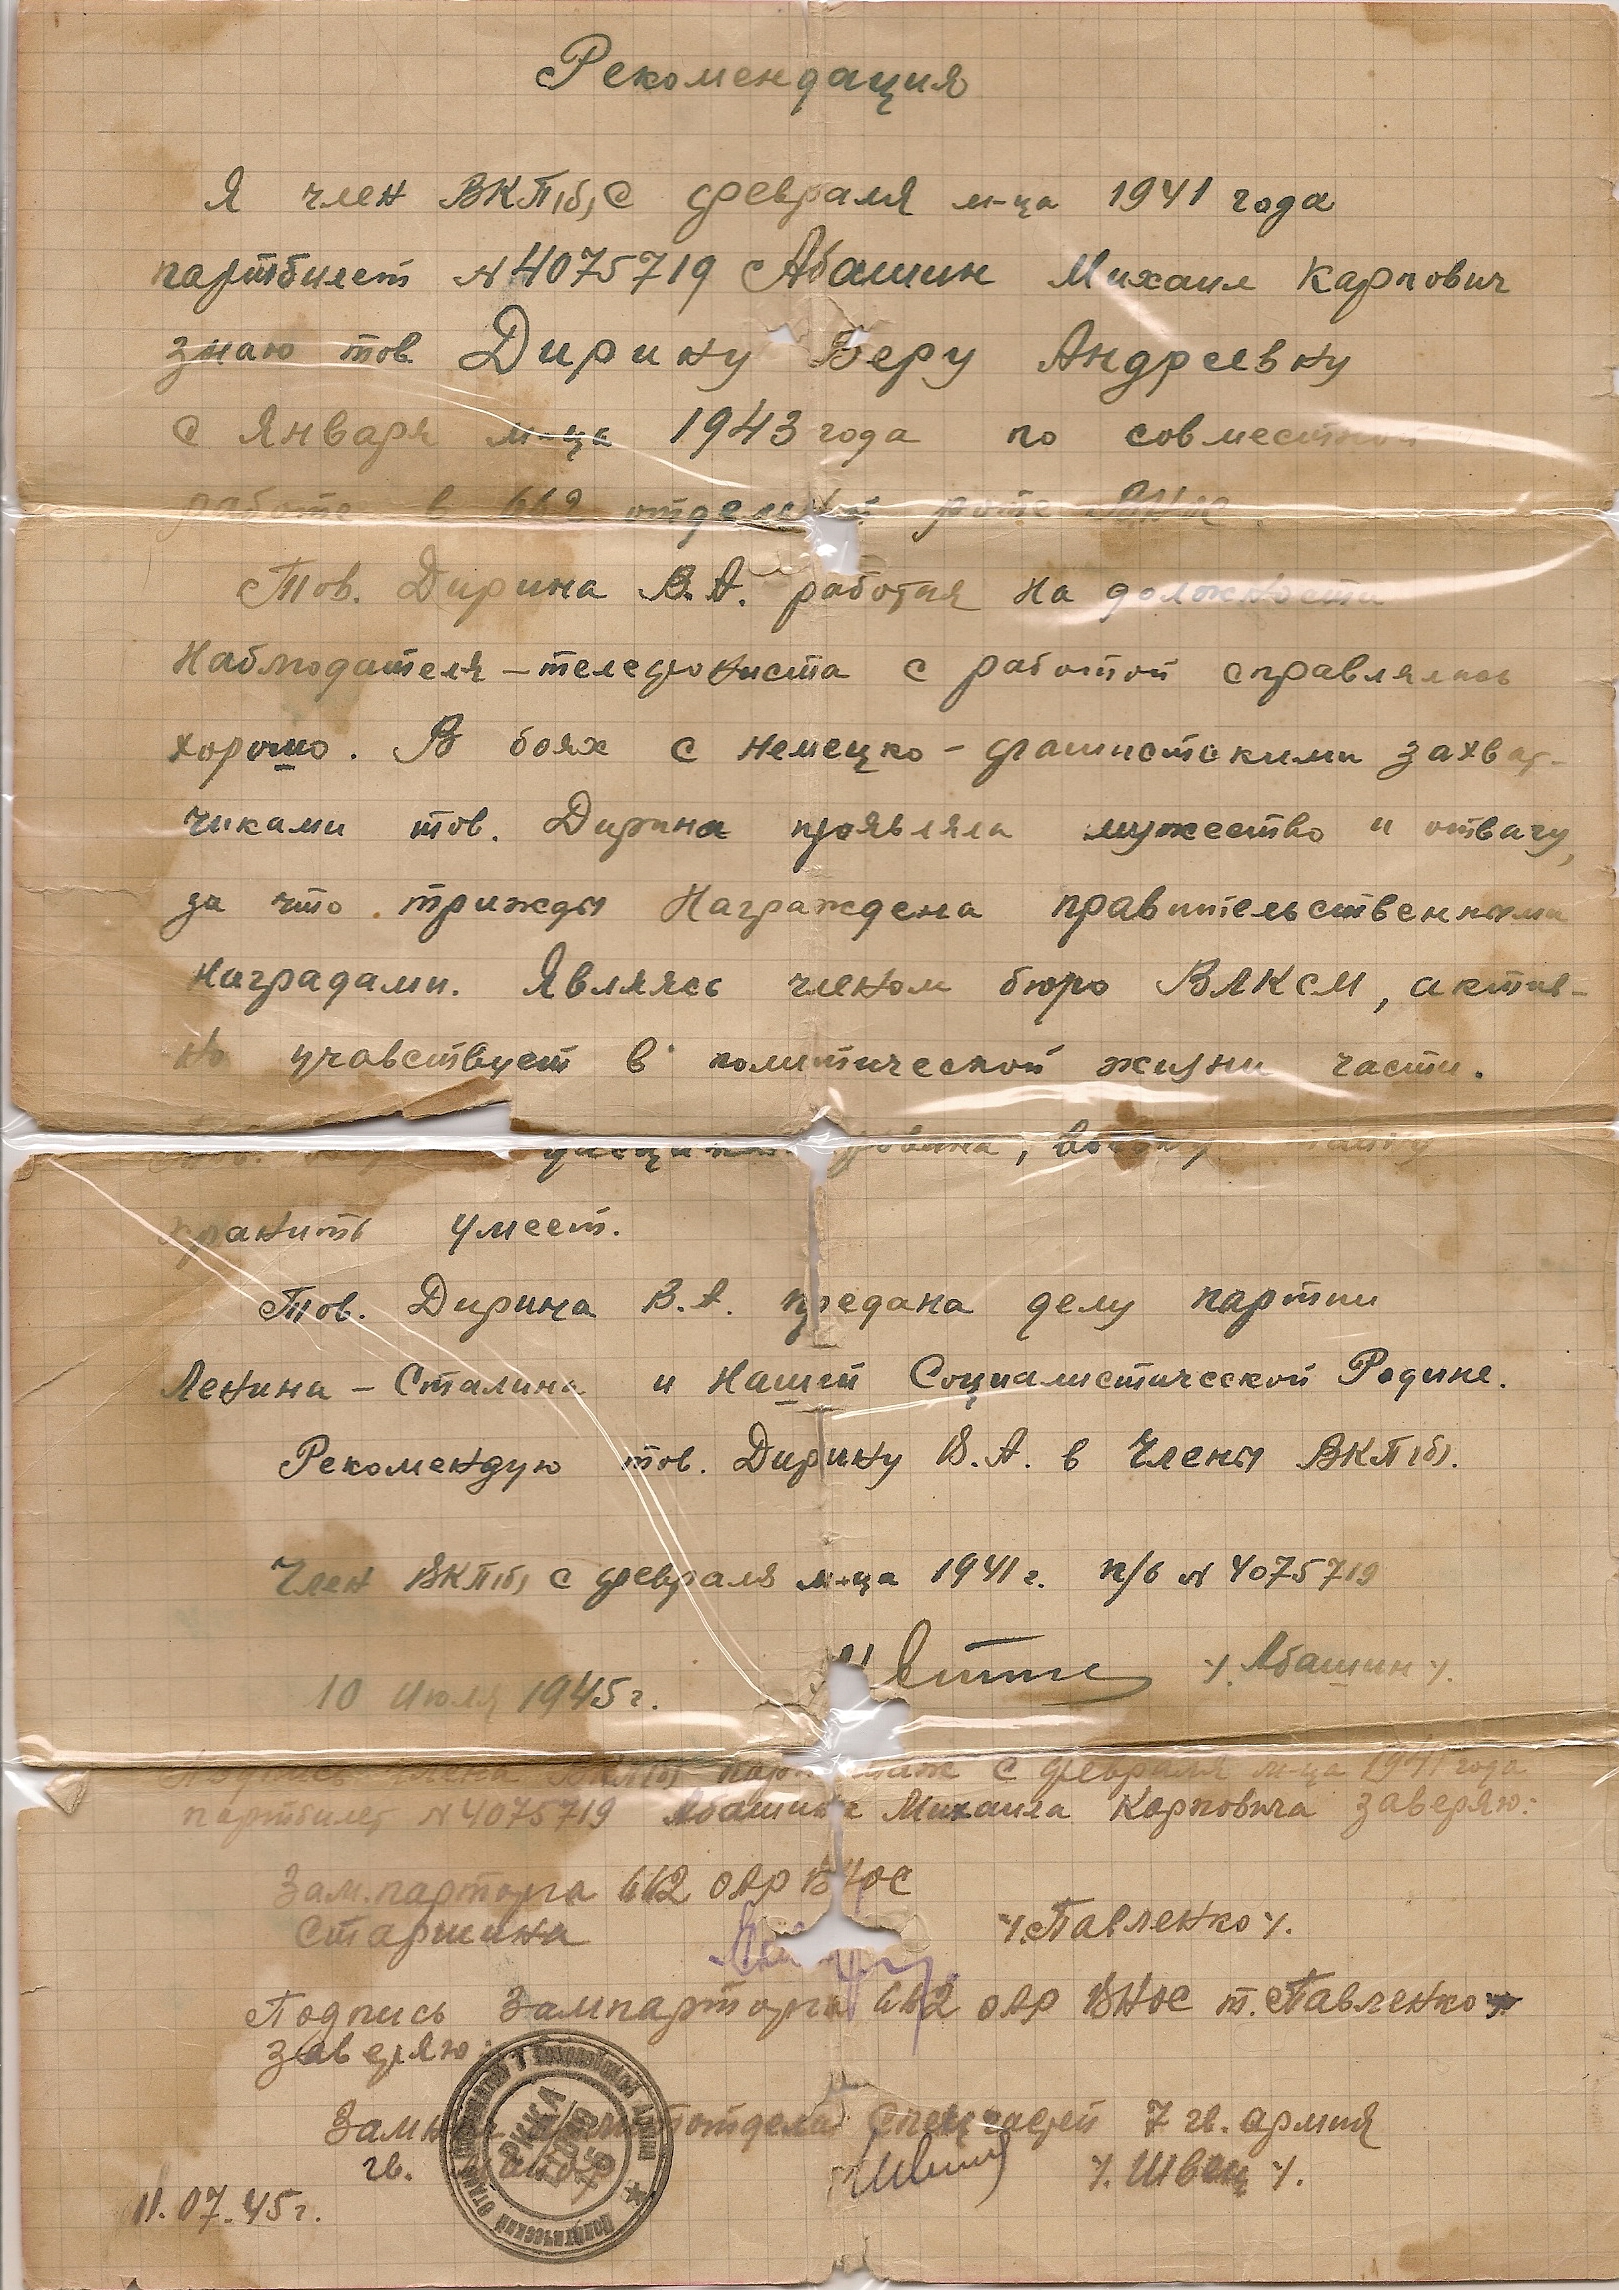 Рекомендация
Я член ВКП(б) с февраля м-ца 1941 года
партбилет N 4075719 Абашин Михаил Карпович
знаю тов Дирину Веру Андреевну
с Января м-ца 1943 года по совместной
работе в 662 отдельной роте ВНОС.
Тов. Дирина В.А. работая на должности
Наблюдателя – телефониста с работой справлялась
хорошо. В боях с немецко – фашистскими захват-
чиками тов. Дирина проявляла мужество и отвагу,
за что трижды Награждена правительственными
Наградами. Являясь членом бюро ВЛКСМ, актив-
но учавствует в политической жизни части.
Тов. тайну
хранить умеет.
Тов. Дирина В.А. предана делу партии
Ленина – Сталина и Нашей Социалистической Родине.
Рекомендую тов. Дирину В.А. в Члены ВКП(б).
Член ВКП(б) с февраля м-ца 1941 г. п/б N 4075719
/. Абашин /.
10 Июля 1945 г.
Подпись члена ВКП(б) партстаж с февраля м-ца 1941 года
партбилет N 4075719 Абашина Михаила Карповича заверяю:
Зам.парторга 662 ОАР ВНОС
Старшина /. Павленко /.
Подпись Зампарторга 662 ОАР ВНОС т. Павленко
заверяю:
Зам политотдела Спецчастей 7 гв. армия
гв. Майор /. Швец /.
11.07.45 г.
РККА